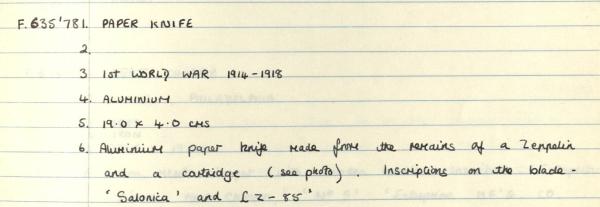 F.635'781. PAPER KNIFE
2.
3 1st WORLD WAR 1914-1918
4. ALUMINIUM
5. 19.0 x 4.0 cms
6. Aluminium paper knife made from the remains of a Zeppelin
and a cartridge (see photo). Inscriptions on the blade -
'Salonica' and LZ-85"